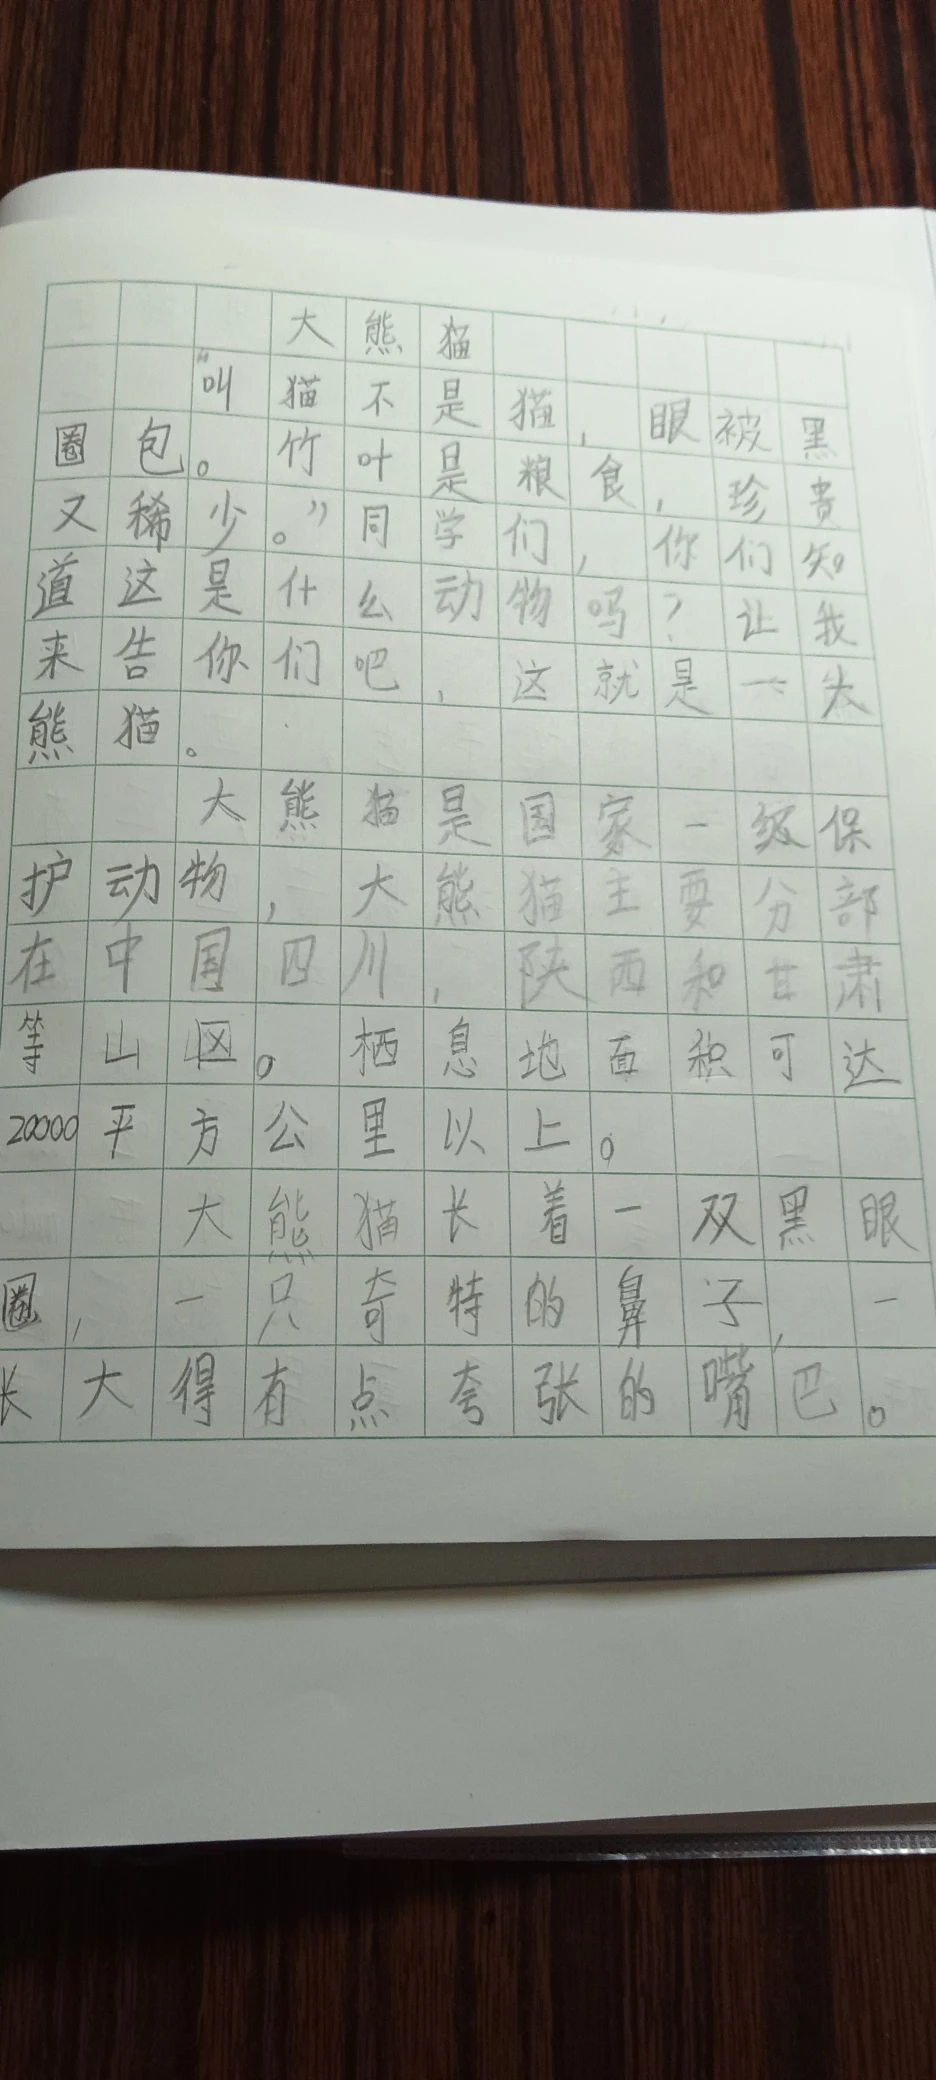 大熊猫
“叫猫不是猫，眼被黑
圈包。竹叶是粮食，珍贵
又稀少。”同学们，你们知
道这是什么动物吗？让我
来告你们吧，这就是一大
熊猫。
大熊猫是国家一级保
护动物，大熊猫主要分部
在中国四川，陕西和甘肃
等山区。栖息地面积可达
20000平方公里以上。
大熊猫长着一双黑眼
圈，一只奇特的鼻子，一
长大得有点夸张的嘴巴。